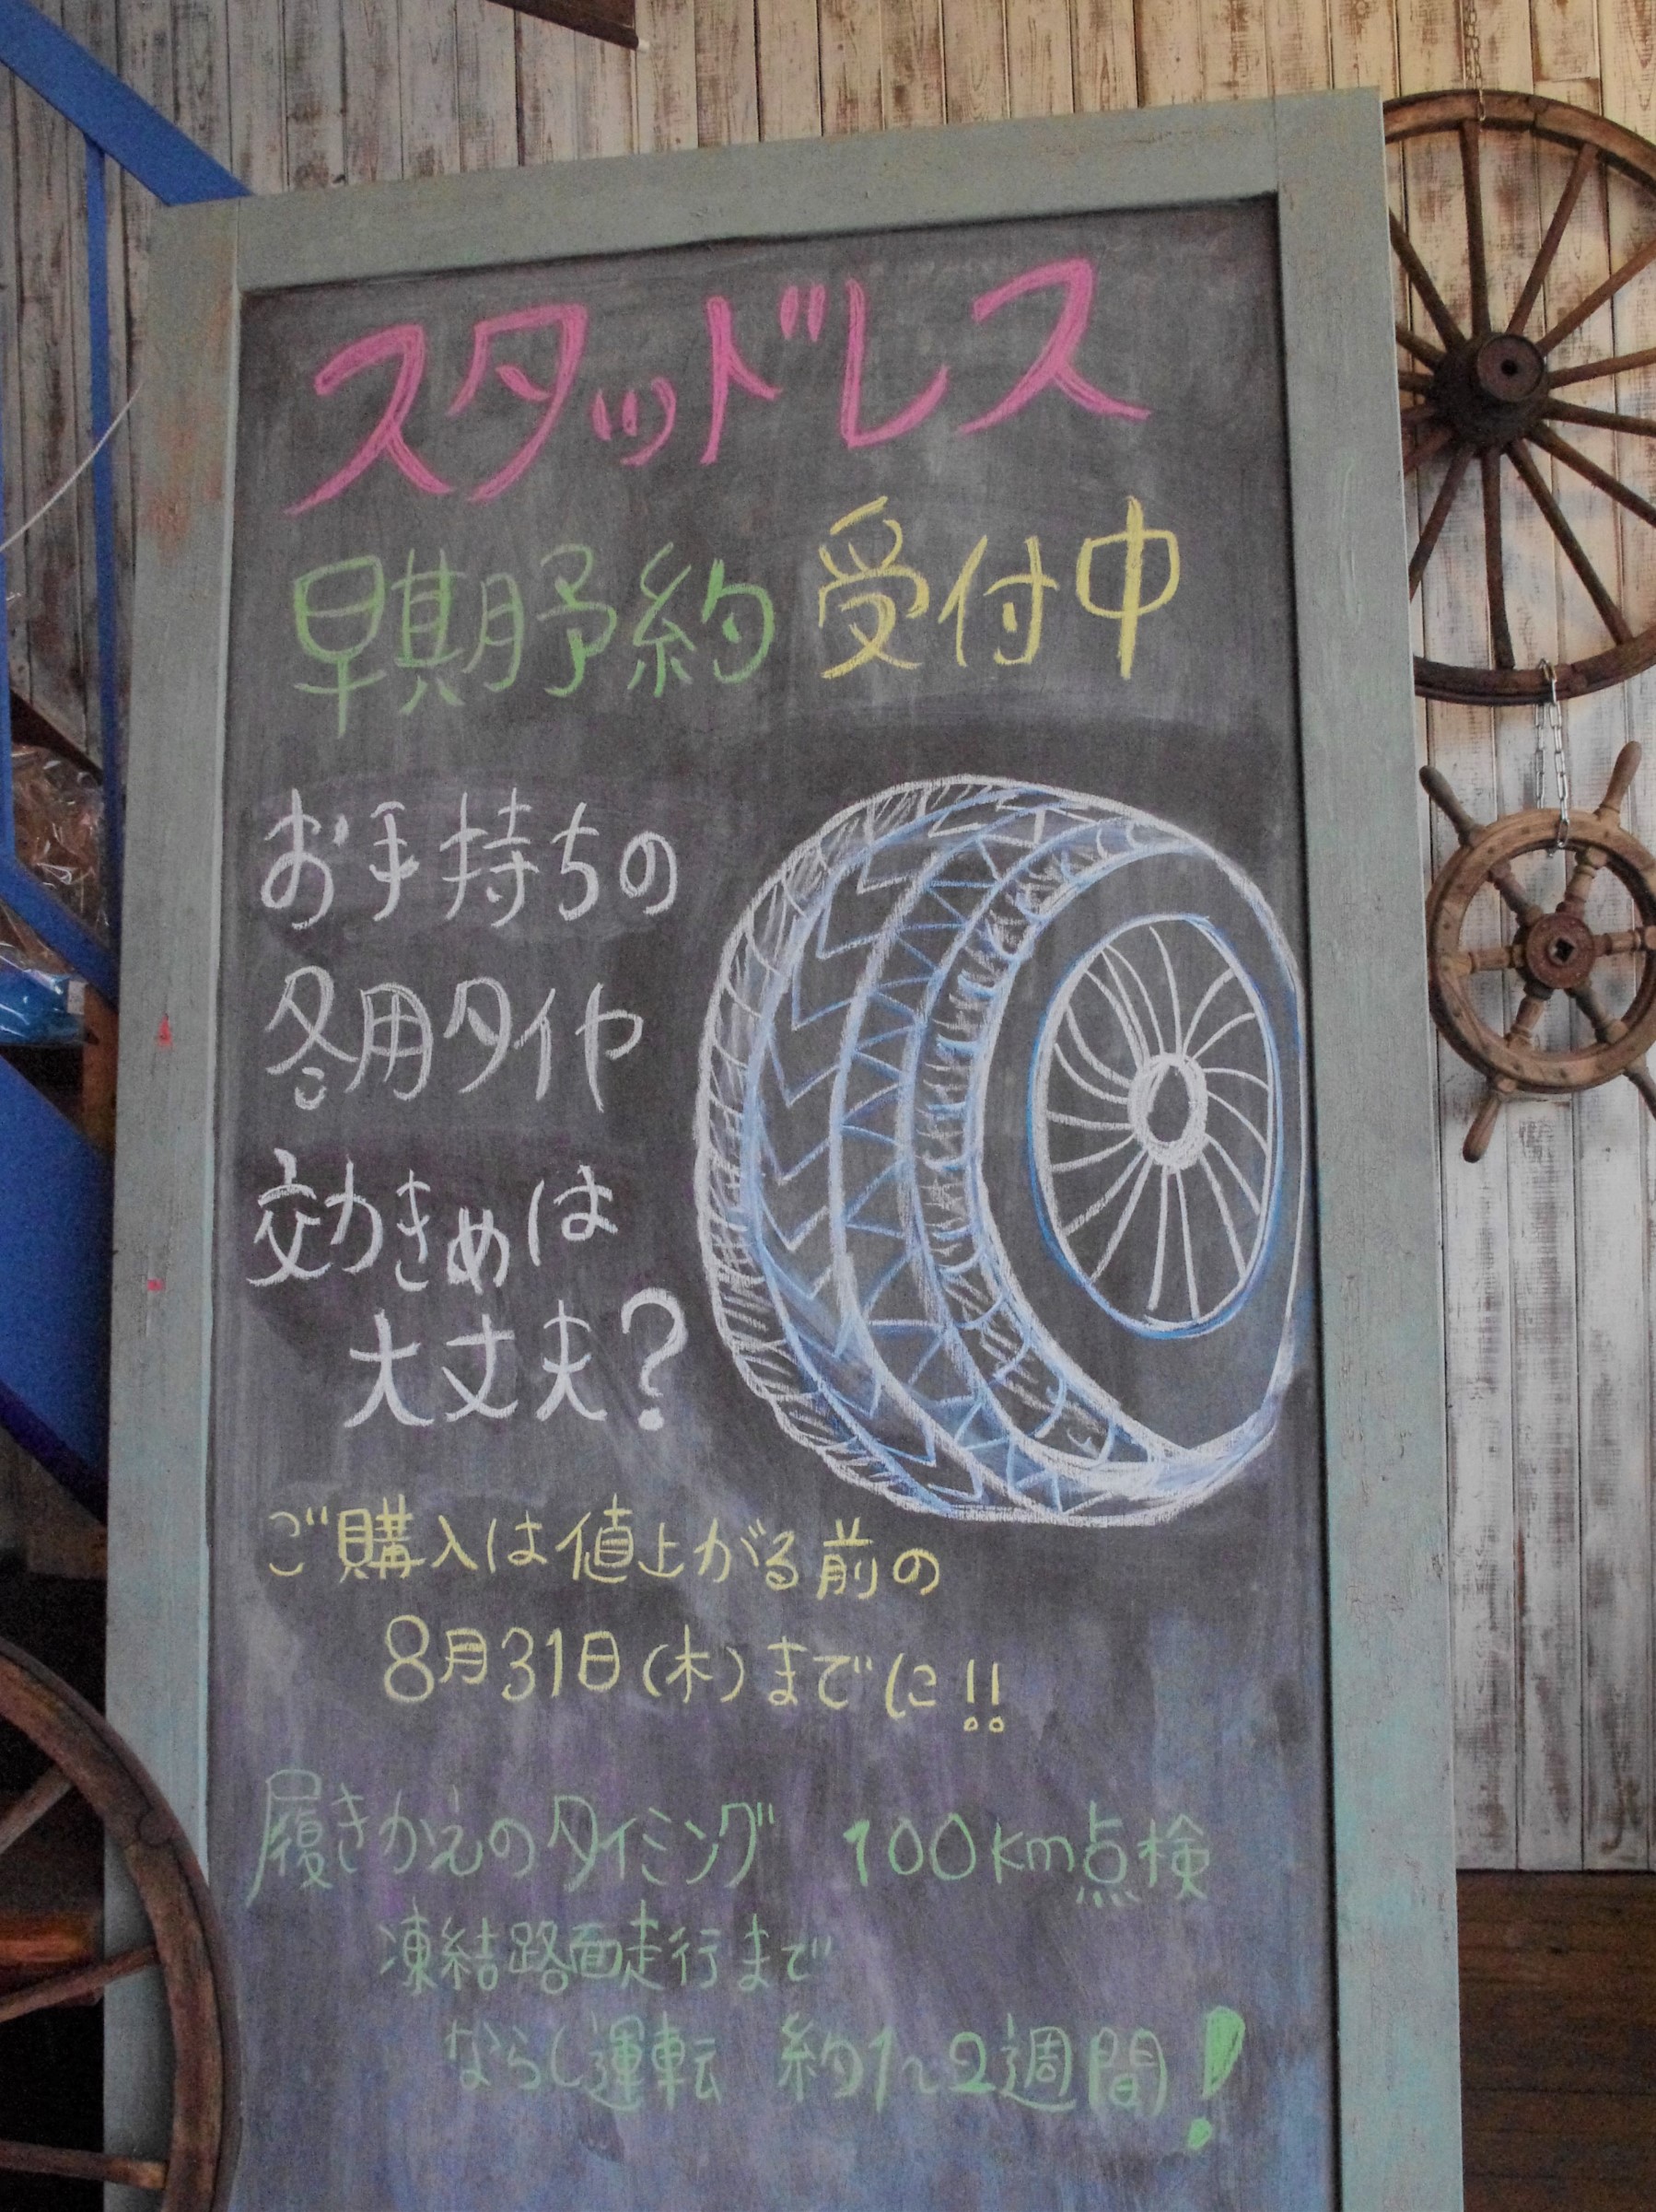 スタッドレス
早期予約 受付中
お手持ちの
冬用タイヤ
効きめは
大丈夫?
ご購入は値上がる前の
8月31日(木)までに!!
履きかえのタイミング 100km点検
凍結路面走行まで
ならし運転 約1~2週間!